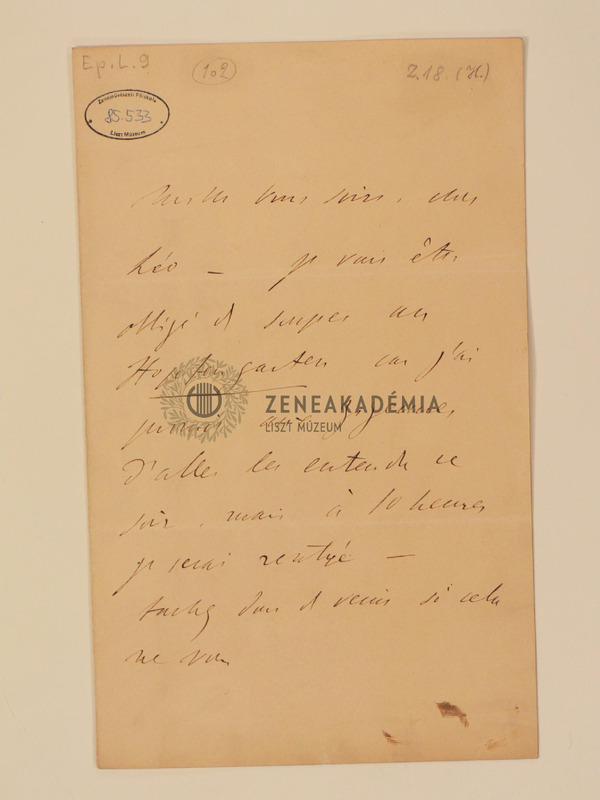 Ep. L. 9
102
Z. 18. (H.)
Zeneművészeti Főiskola
85.533
Liszt Múzeum
bons soirs, cher
Léo — je vais être
obligé de souper au
garten car j'ai
promis aux
ZENEAKADÉMIA
LISZT MÚZEUM
d'aller les entendre ce
soir, mais à 10 heures
je serai rentré —
tachez donc de venir si cela
ne vous